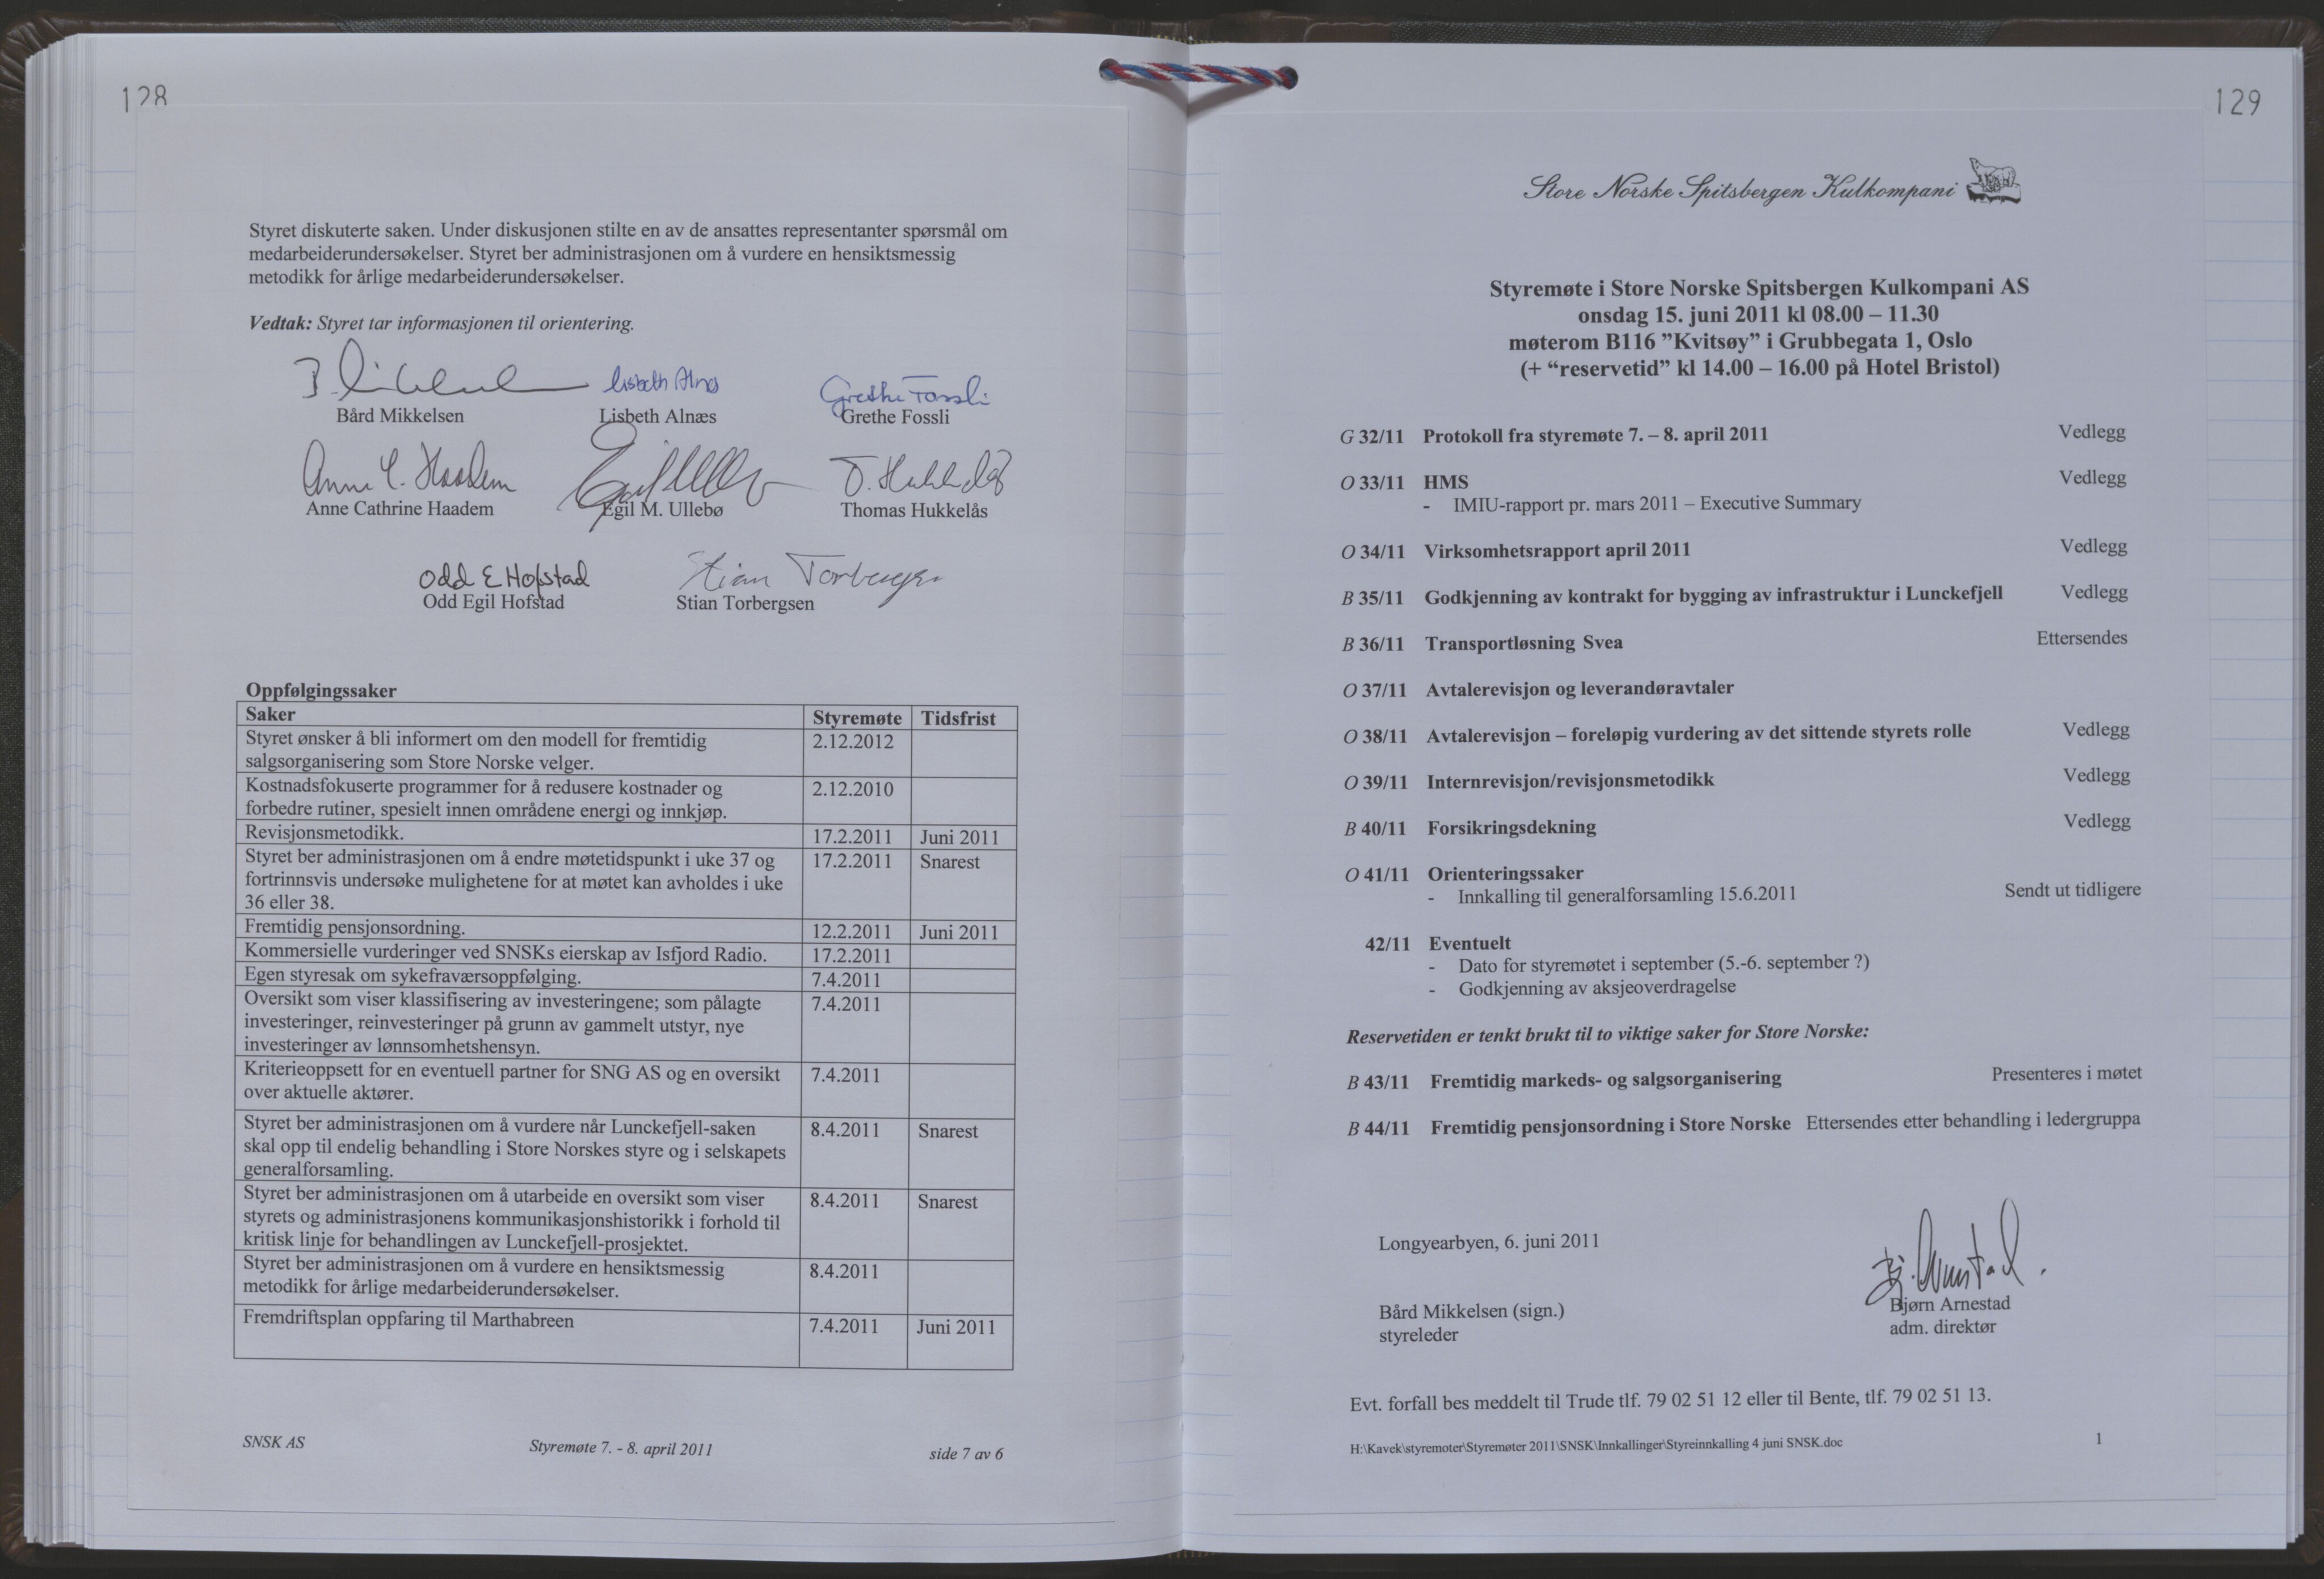 128
Styret diskuterte saken. Under diskusjonen stilte en av de ansattes representanter spørsmål om
medarbeiderundersøkelser. Styret ber administrasjonen om å vurdere en hensiktsmessig
metodikk for årlige medarbeiderundersøkelser.
Vedtak: Styret tar informasjonen til orientering.
Lisbeth Alnæs
Grethe Fossli
Bård Mikkelsen
Lisbeth Alnæs
Grethe Fossli
Anne C. Haadem
T. Hukkelås
Anne Cathrine Haadem
Egil M. Ullebø
Thomas Hukkelås
Odd E Hofstad
Stian Torbergsen
Odd Egil Hofstad
Stian Torbergsen
Oppfølgingssaker
Saker Styremøte Tidsfrist
Styret ønsker å bli informert om den modell for fremtidig 2.12.2012
salgsorganisering som Store Norske velger.
Kostnadsfokuserte programmer for å redusere kostnader og 2.12.2010
forbedre rutiner, spesielt innen områdene energi og innkjøp.
Revisjonsmetodikk. 17.2.2011 Juni 2011
Styret ber administrasjonen om å endre møtetidspunkt i uke 37 og 17.2.2011 Snarest
fortrinnsvis undersøke mulighetene for at møtet kan avholdes i uke
36 eller 38.
Fremtidig pensjonsordning. 12.2.2011 Juni 2011
Kommersielle vurderinger ved SNSKs eierskap av Isfjord Radio. 17.2.2011
Egen styresak om sykefraværsoppfølging. 7.4.2011
Oversikt som viser klassifisering av investeringene; som pålagte 7.4.2011
investeringer, reinvesteringer på grunn av gammelt utstyr, nye
investeringer av lønnsomhetshensyn.
Kriterieoppsett for en eventuell partner for SNG AS og en oversikt 7.4.2011
over aktuelle aktører.
Styret ber administrasjonen om å vurdere når Lunckefjell-saken 8.4.2011 Snarest
skal opp til endelig behandling i Store Norskes styre og i selskapets
generalforsamling.
Styret ber administrasjonen om å utarbeide en oversikt som viser 8.4.2011 Snarest
styrets og administrasjonens kommunikasjonshistorikk i forhold til
kritisk linje for behandlingen av Lunckefjell-prosjektet.
Styret ber administrasjonen om å vurdere en hensiktsmessig 8.4.2011
metodikk for årlige medarbeiderundersøkelser.
Fremdriftsplan oppfaring til Marthabreen 7.4.2011 Juni 2011
SNSK AS Styremøte 7. - 8. april 2011 side 7 av 6
129
Store Norske Spitsbergen Kulkompani
Styremøte i Store Norske Spitsbergen Kulkompani AS
onsdag 15. juni 2011 kl 08.00 – 11.30
møterom B116 ”Kvitsøy” i Grubbegata 1, Oslo
(+ “reservetid” kl 14.00 – 16.00 på Hotel Bristol)
G 32/11 Protokoll fra styremøte 7. – 8. april 2011 Vedlegg
O 33/11 HMS Vedlegg
- IMIU-rapport pr. mars 2011 – Executive Summary
O 34/11 Virksomhetsrapport april 2011 Vedlegg
B 35/11 Godkjenning av kontrakt for bygging av infrastruktur i Lunckefjell Vedlegg
B 36/11 Transportløsning Svea Ettersendes
O 37/11 Avtalerevisjon og leverandøravtaler
O 38/11 Avtalerevisjon – foreløpig vurdering av det sittende styrets rolle Vedlegg
O 39/11 Internrevisjon/revisjonsmetodikk Vedlegg
B 40/11 Forsikringsdekning Vedlegg
O 41/11 Orienteringssaker
- Innkalling til generalforsamling 15.6.2011 Sendt ut tidligere
42/11 Eventuelt
- Dato for styremøtet i september (5.-6. september ?)
- Godkjenning av aksjeoverdragelse
Reservetiden er tenkt brukt til to viktige saker for Store Norske:
B 43/11 Fremtidig markeds- og salgsorganisering Presenteres i møtet
B 44/11 Fremtidig pensjonsordning i Store Norske Ettersendes etter behandling i ledergruppa
Longyearbyen, 6. juni 2011
Bj. Arnestad
Bård Mikkelsen (sign.) Bjørn Arnestad
styreleder adm. direktør
Evt. forfall bes meddelt til Trude tlf. 79 02 51 12 eller til Bente, tlf. 79 02 51 13.
H:\Kavek\styremoter\Styremøter 2011\SNSK\Innkallinger\Styreinnkalling 4 juni SNSK.doc 1